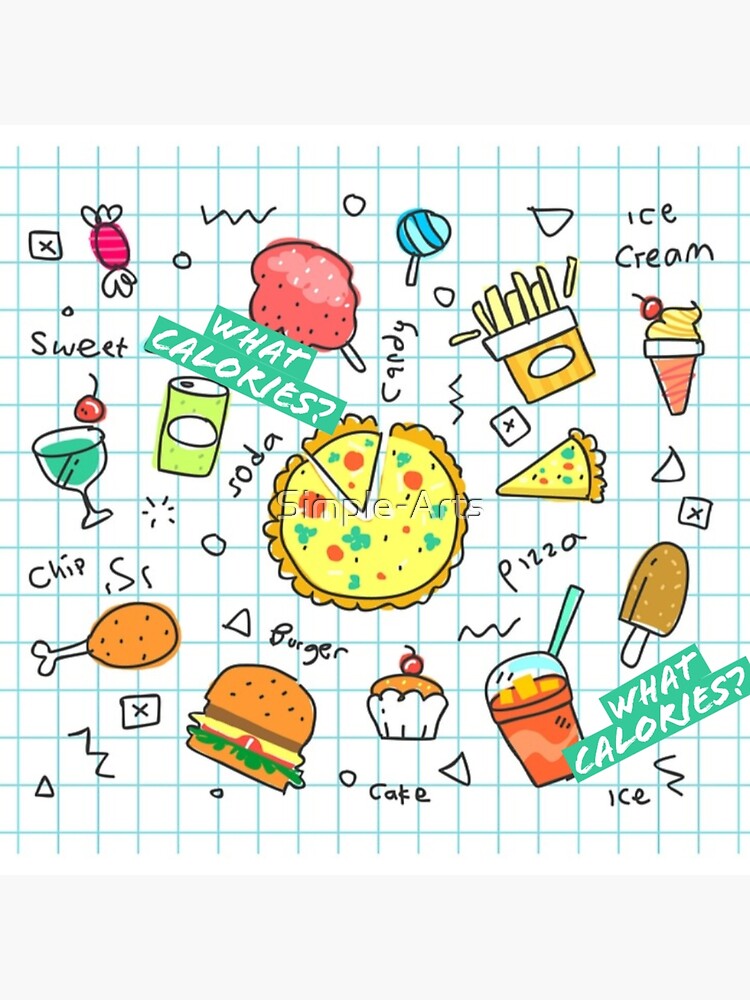 Ice
Cream
Sweet
WHAT
CALORIES?
Candy
soda
Simple-Arts
Pizza
Chip
Burger
WHAT
CALORIES?
Cake
Ice